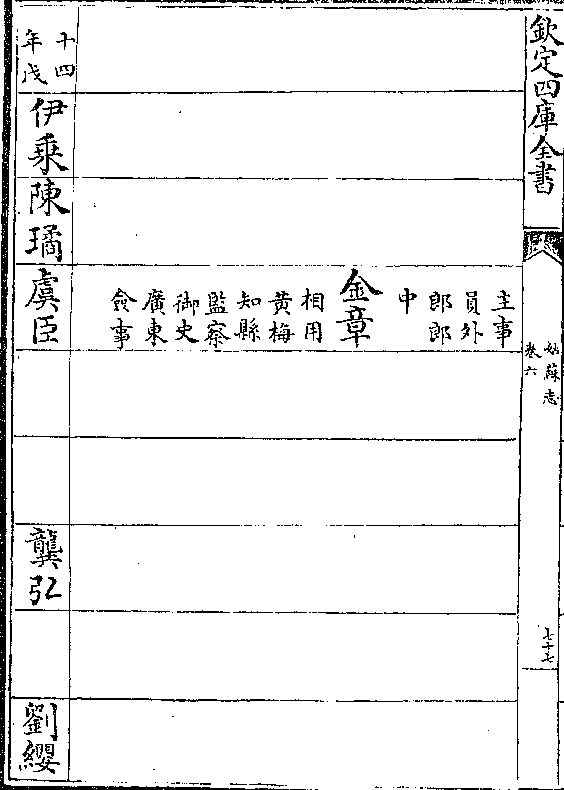 欽定四庫全書
姑蘇志
卷六
七十七
主事
員外
郎郎
中
金章
相用
黄梅
知縣
監察
御史
廣東
僉事
十四
年戊
伊乗
陳璚
虞臣
龔弘
劉纓